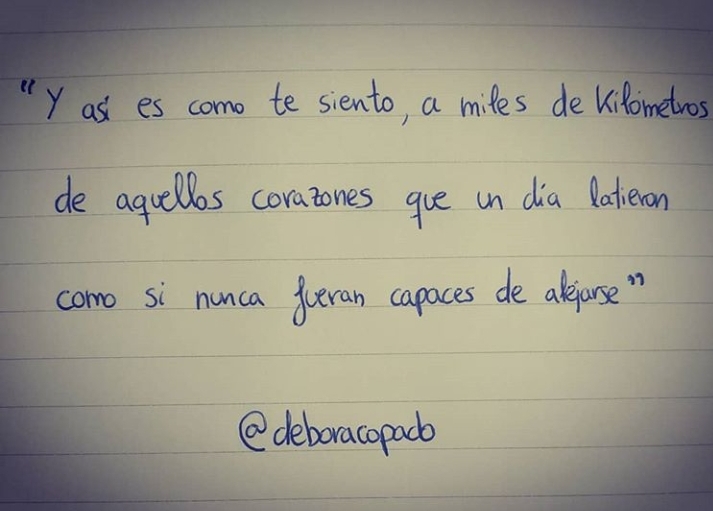 "Y así es como te siento, a miles de Kilómetros
de aquellos corazones que un día latieron
como si nunca fueran capaces de alejarse"
@deboracopado